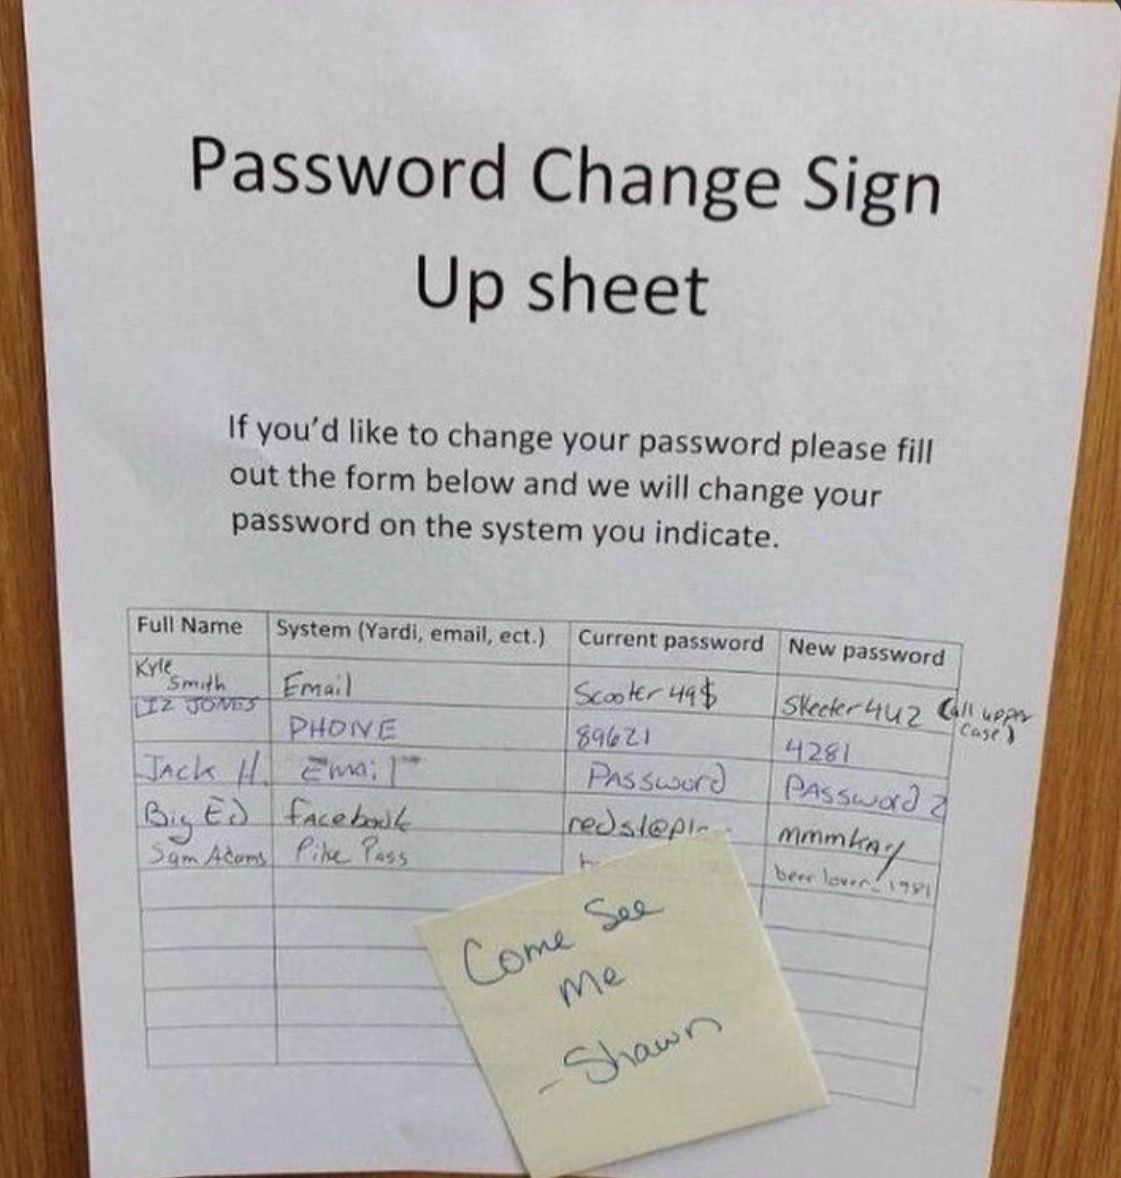 Password Change Sign
Up sheet
If you'd like to change your password please fill
out the form below and we will change your
password on the system you indicate.
Full Name System (Yardi, email, ect.) Current password New password
Kyle
Smith Email Scooter 49$ Skeeter 4U2 (all upper
case)
LIZ JONES PHONE 89621 4281
JACK H. Email PASSword PASSword 2
Big ED facebook mmmkay
Sam Adams Pike Pass beer lover_1981
Come See
me
-Shawn